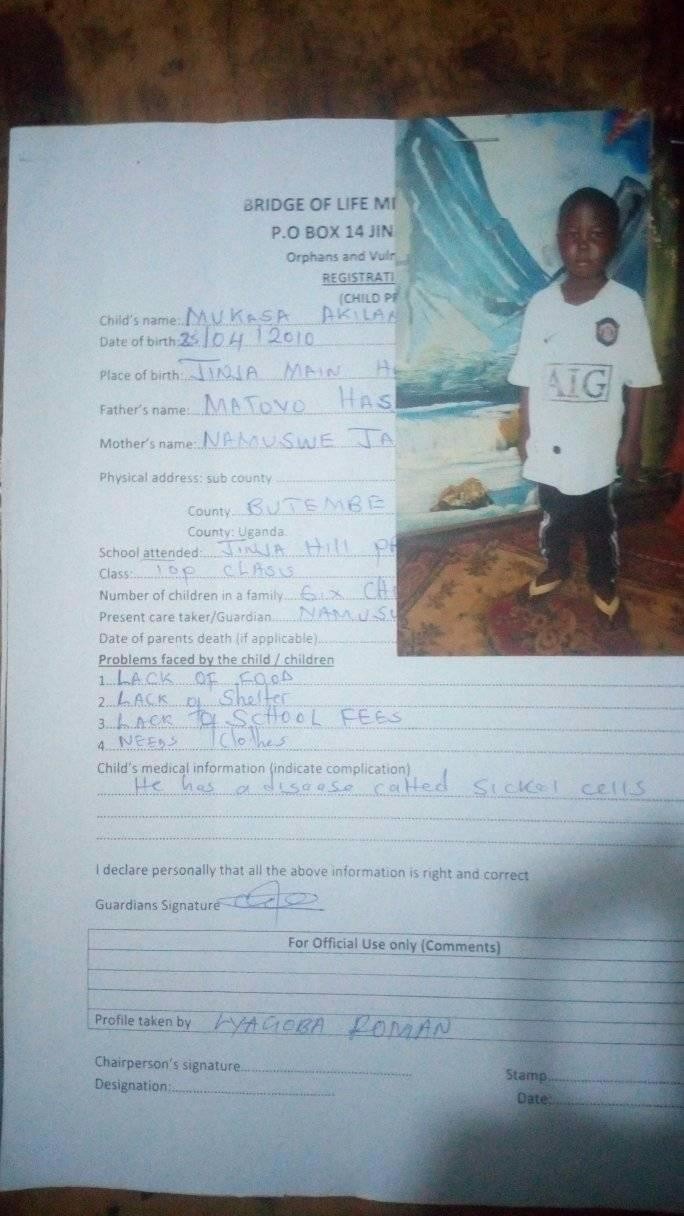 BRIDGE OF LIFE MI
P.O BOX 14 JIN
Orphans and Vuln
REGISTRATI
(CHILD PR
Child's name: MUKASA AKILAM
Date of birth: 25/04/2010
Place of birth: JINJA MAIN H
Father's name: MATOVO HAS
Mother's name: NAMUSWE JA
Physical address: sub county
County BUTEMBE
County: Uganda.
School attended: JINJA Hill
Class: TOP CLASS
Number of children in a family Six CHI
Present care taker/Guardian NAMUSU
Date of parents death (if applicable)
Problems faced by the child / children
1. LACK OF FOOD
2. LACK of Shelter
3. LACK of SCHOOL FEES
4. NEEDS Clothes
Child's medical information (indicate complication)
He has a disease called Sickel cells
I declare personally that all the above information is right and correct
Guardians Signature
For Official Use only (Comments)
Profile taken by LYAGOBA ROMAN
Chairperson's signature
Stamp
Designation:
Date:
AIG